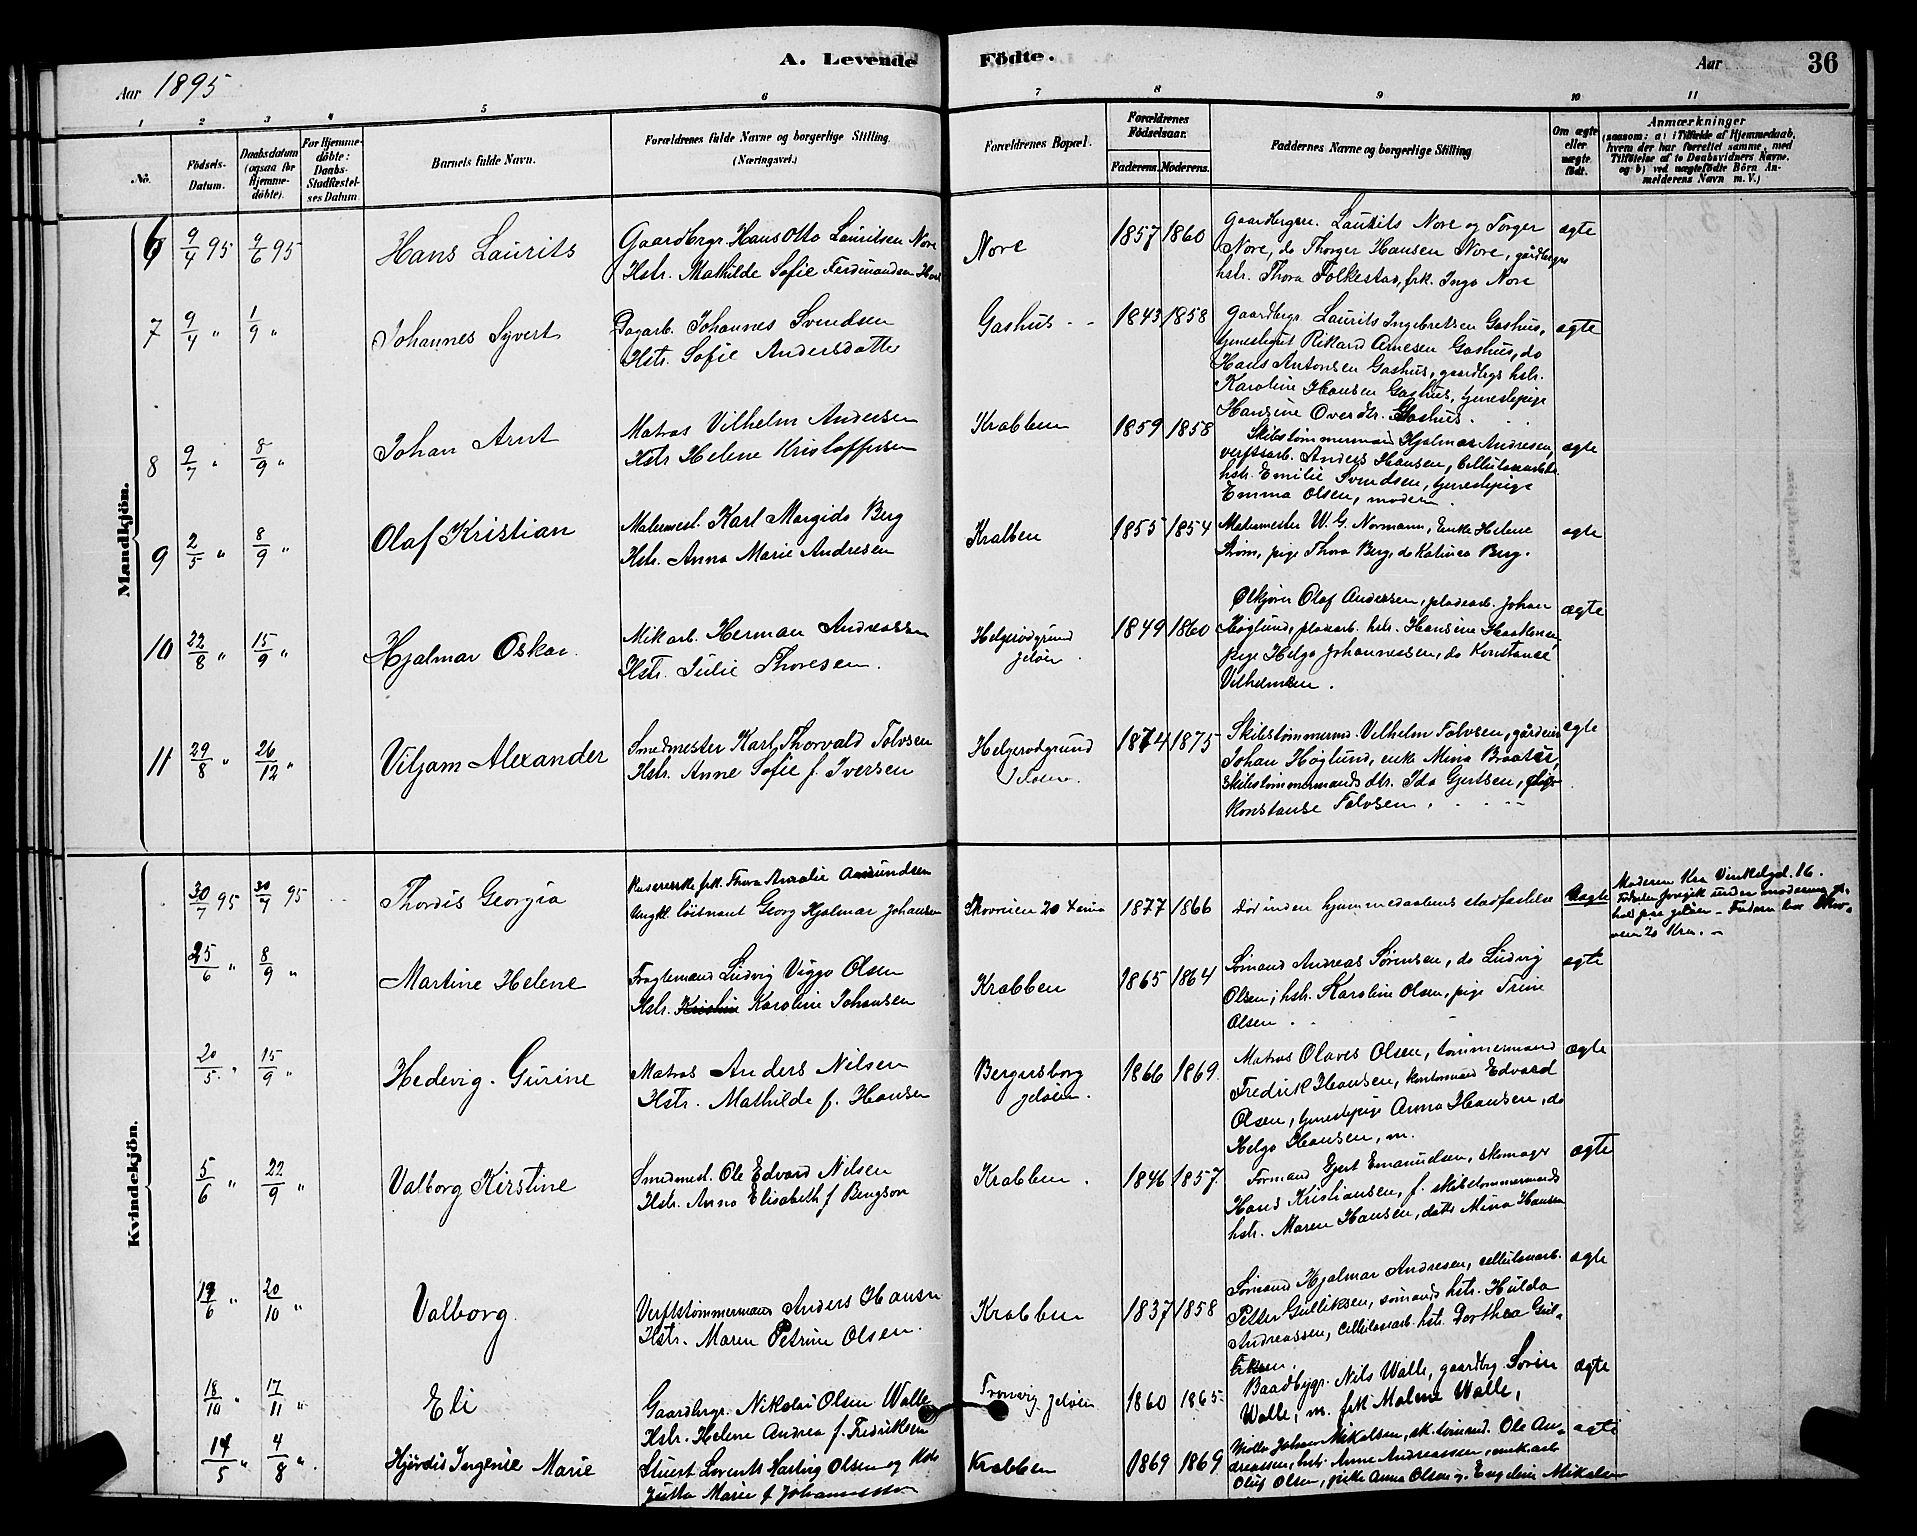 A. Levende Födte.
Aar 1895
Aar
36
1 2 3 4 5 6 7 8 9 10 11
No.
Födsels-
Datum.
Daabsdatum
(ogsaa for
Hjemme-
döbte).
For Hjemme-
döbte:
Daabs-
Stadfæstel-
ses Datum.
Barnets fulde Navn.
Forældrenes fulde Navne og borgerlige Stilling.
(Næringsvei.)
Forældrenes Bopæl.
Forældrenes
Födselsaar.
Faderens. Moderens.
Faddernes Navne og borgerlige Stilling
Om ægte
eller
uægte
födt.
Anmærkninger
(saasom: a) i Tilfælde af Hjemmedaab,
hvem der har forrettet samme, med
Tilföielse af to Daabsvidners Navne.
og b) ved uægtefödte Börn An-
melderens Navn m. V.)
Mandkjön.
6 9/4 95 9/6 95
Hans Laurits
Gaardbrgr. Hans Otto Lauritsen Nore
Hstr. Mathilde Sofie Ferdinandsen
Nore
1857 1860
Gaardbrgere. Laurits Nore og Torger
Nore, do Thorger Hansen Nore, gårdbrgrs
hstr. Thora Folkestad, frk. Inga Nore
ægte
7 9/4 " 1/9 "
Johannes Syvert
Dagarb. Johannes Svendsen
Hstr. Sofie Andersdatter
Gashus
1843 1858
Gaardbgr Laurits Ingebretsen Gashus,
tjenestegut Rikard Arnesen Gashus, do
Hans Antonsen Gashus, gaardbgs hstr.
Karoline Hansen Gashus, tjenestepige
Hansine Overdtr. Gashus.
ægte
8 9/7 " 8/9 "
Johan Arnt
Matros Vilhelm Andersen
Hstr Helene Kristoffersen
Krabben
1859 1858
Skibstømmermand Hjalmar Andresen,
verftsarb. Anders Hansen, cellulosearb.
hstr. Emilie Svendsen, tjenestepige
Emma Olsen, modern
ægte
9 2/5 " 8/9 "
Olaf Kristian
Malermest. Karl Margido Berg
Hstr. Anna Marie Andresen
Krabben
1855 1854
Malermester W. G. Normann, Enke Helene
Strøm, pige Thora Berg, do Katinca Berg.
ægte
10 22/8 " 15/9 "
Hjalmar Oskar
Mik arb. Herman Andreassen
Hstr. Julie Thoresen.
Helgerødgrund
Jeløen.
1849 1860
Ølkjører Olaf Andersen, pladsarb. Johan
Høglund, pladsarb. hstr. Hansine Haakonsen
pige Helga Johannessen, do Konstance
Vilhelmsen.
ægte
11 29/8 " 26/12 "
Viljam Alexander
Smedmester Karl Thorvald Tolvsen
Hstr. Anne Sofie f. Iversen
Helgerodgrund
Jeløen.
1874 1875
Skibstømmermd Vilhelm Tolvsen, gårdeier
Johan Høglund, enke Mina Braaten,
skibstømmermands dtr. Ida Gjertsen, pige
Konstanse Tolvsen.
ægte
Kvindekjön.
30/7 95 30/7 95
Thordis Georgia
frk. Thora Amalie Amundsen
Ungkl. løitnant Georg Hjalmar Johansen
Skovveien 20 Kr.ania
1877 1866
Død inden hjemmedaabens stadfæstelse
uægte
Moderen Kra Vinkelgd. 16.
Fødselen foregik under moderens op-
hold paa Jeløen. - Faderen bor Skov-
veien 20 Kra. -
25/6 " 8/9 "
Martine Helene
Fragtemand Ludvig Viggo Olsen
Hstr. Kristine Karoline Johansen
Krabben
1865 1864
Sømand Andreas Sørensen, do Ludvig
Olsen; hstr. Karoline Olsen, pige Trine
Olsen.
ægte
20/5 " 15/9 "
Hedevig Gurine
Matros Anders Nilsen
Hstr. Mathilde f. Hansen
Bergersborg
Jeløen.
1866 1869
Matros Olaves Olsen, tømmermand
Fredrik Hansen, kontormand Edvard
Olsen, tjenestepige Anna Hansen, do
Helga Hansen, m.
ægte
5/6 " 22/9 "
Valborg Kirstine
Smedmest. Ole Edvard Nilsen
Hstr. Anna Elisabeth f Bengson
Krabben.
1846 1857
Formand Gjert Emanuelsen, skomager
Hans Kristiansen, f. skibstømmermands
hstr. Maren Hansen, datter Mina Hansen
ægte
19/6 " 20/10 "
Valborg.
Verftstømmermand Anders Hansen
Hstr. Maren Petrine Olsen.
Krabben
1837 1858
Sømand Hjalmar Andresen, cellulosearb.
Petter Gulliksen, sømands hstr. Hulda
Andreassen, cellulosearb. hstr. Dorthea Gul-
liksen.
ægte
18/10 " 17/11 "
Eli
Gaardbrgr. Nikolai Olsen Walle
Hstr. Helene Andrea f. Fredriksen
Tronvig Jeløen
1860 1865
Baadbygr. Nils Walle, gaardbg. Søren
Walle, m. frk Malene Walle,
ægte
14/5 " 4/8 "
Hjördis Ingenie Marie
Stuert Lorents Hartvig Olsen og Hstr
Jutta Marie f Johannessen
Krabben
1869 1869
Johan Mikalsen, sk. tømmd. Ole An-
dreassen, hstr. Anne Andreassen, mekarb
Oluf Olsen, pike Anna Olsen og Engeline Mikalsen
ægte